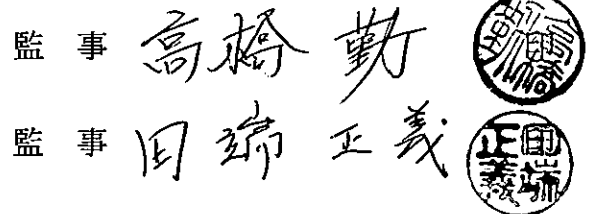 監事 高橋 勤
監事 田端 正義
田端正義